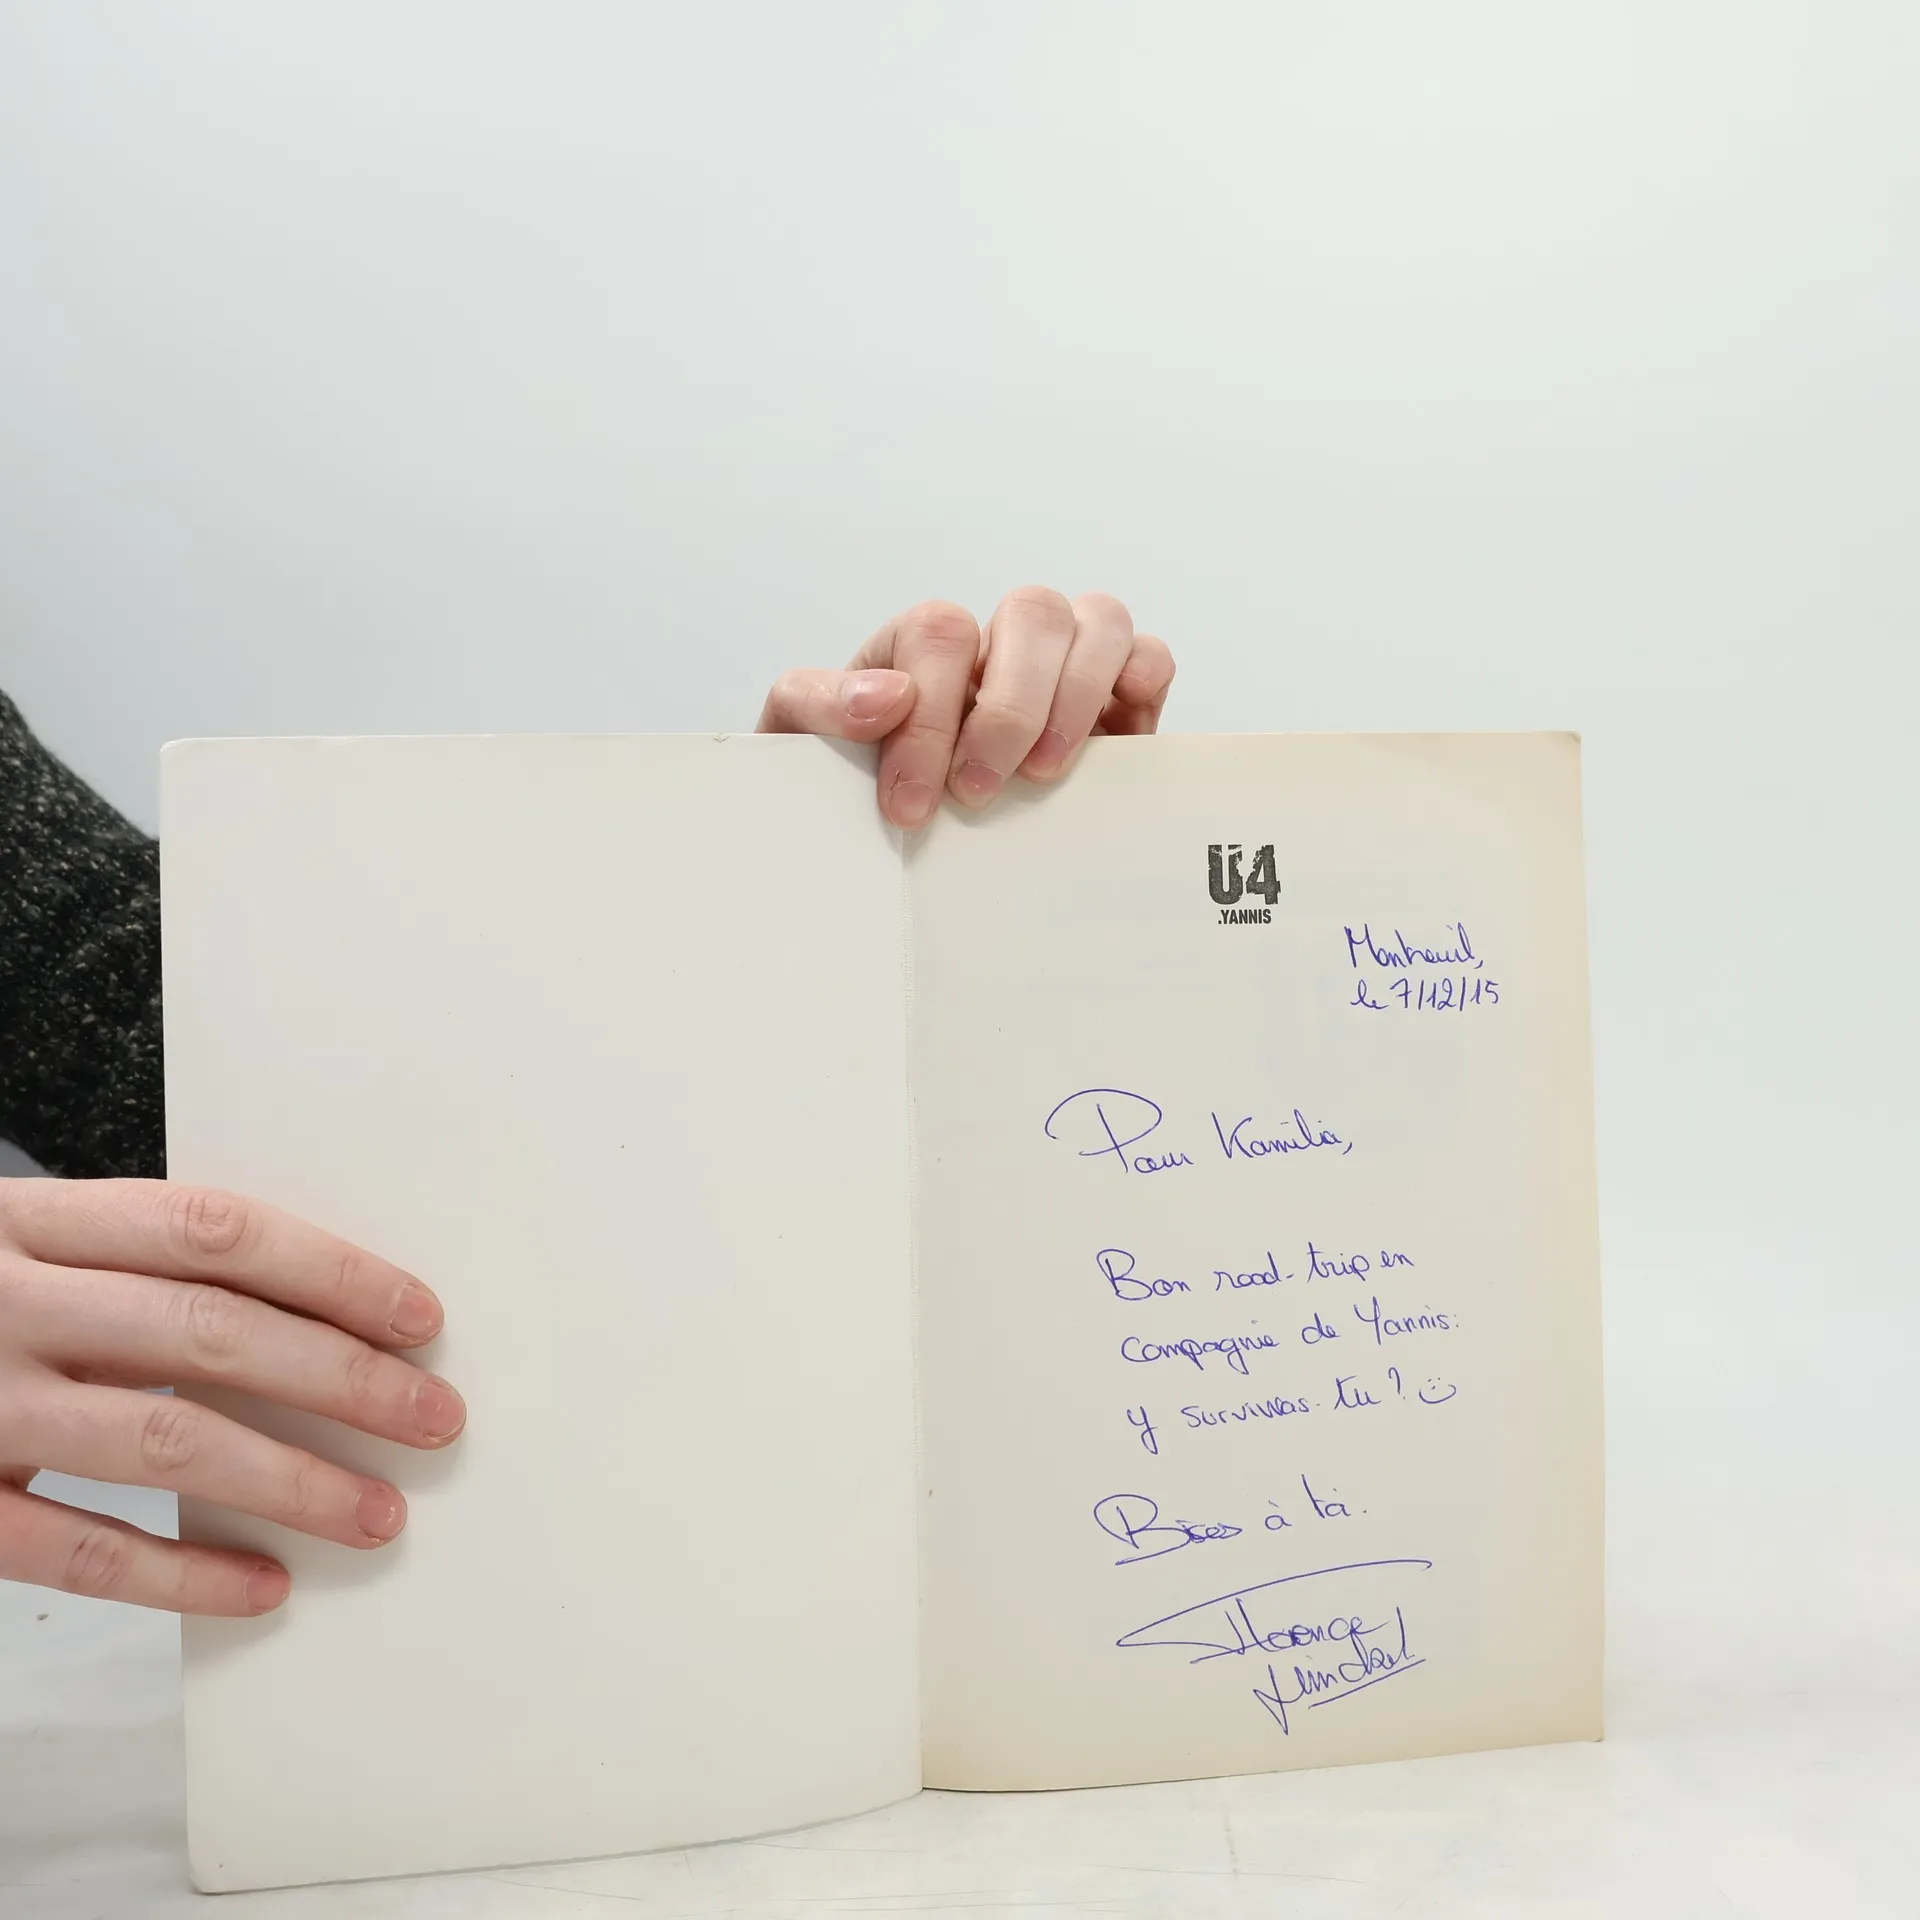 U4
.YANNIS
Montreuil,
le 7/12/15
Pour Kamilia,
Bon road-trip en
compagnie de Yannis:
y survivras-tu? :)
Bises à toi.
Florence
Hinckel